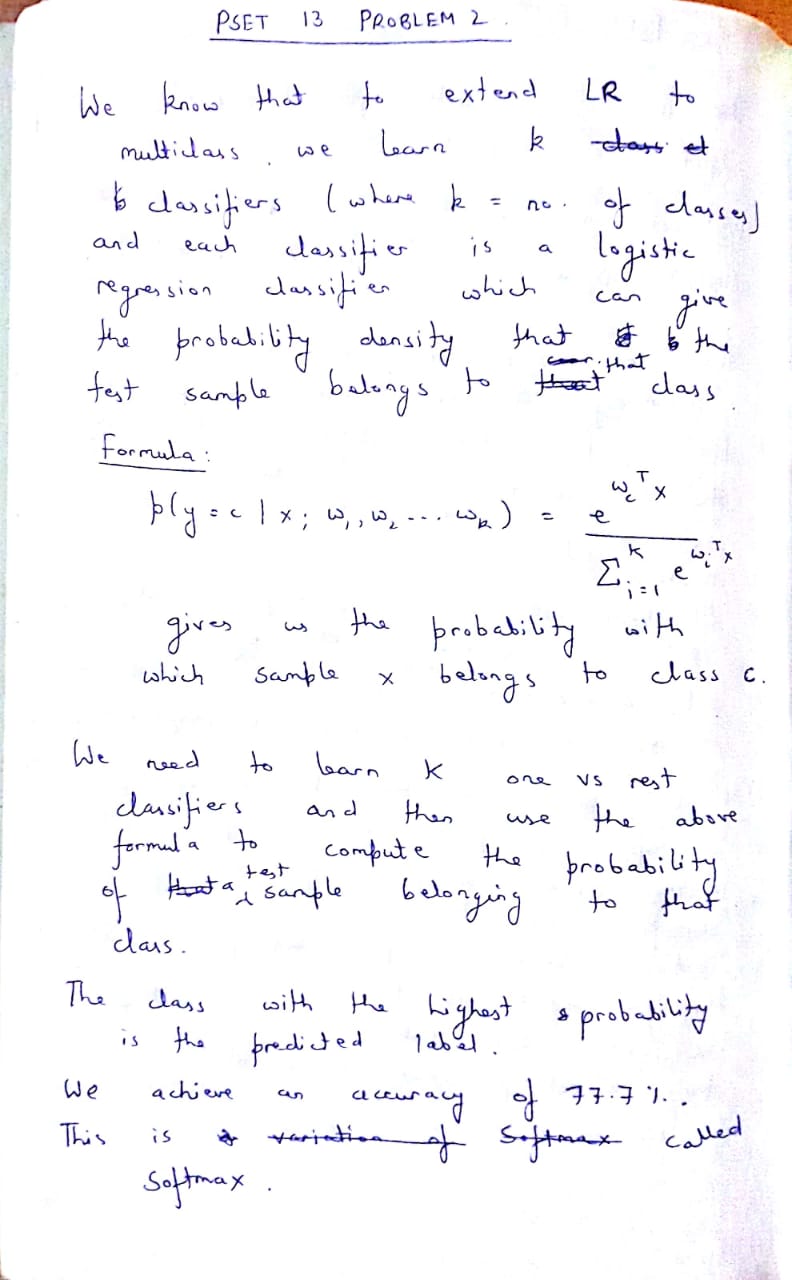 PSET 13 PROBLEM 2.
We know that to extend LR to
multiclass, we learn k
classifiers (where k = no. of classes)
and each classifier is a logistic
regression classifier which can give
the probability density that the
test sample belongs to that class.
Formula:
p(y=c|x; w₁, w₂ ... wₖ) = e^(w_c^T x) / Σ_{i=1}^{k} e^(w_i^T x)
gives us the probability with
which sample x belongs to class c.
We need to learn K one vs rest
classifiers and then use the above
formula to compute the probability
of a test sample belonging to that
class.
The class with the highest probability
is the predicted label.
We achieve an accuracy of 77.7%.
This is called
Softmax.